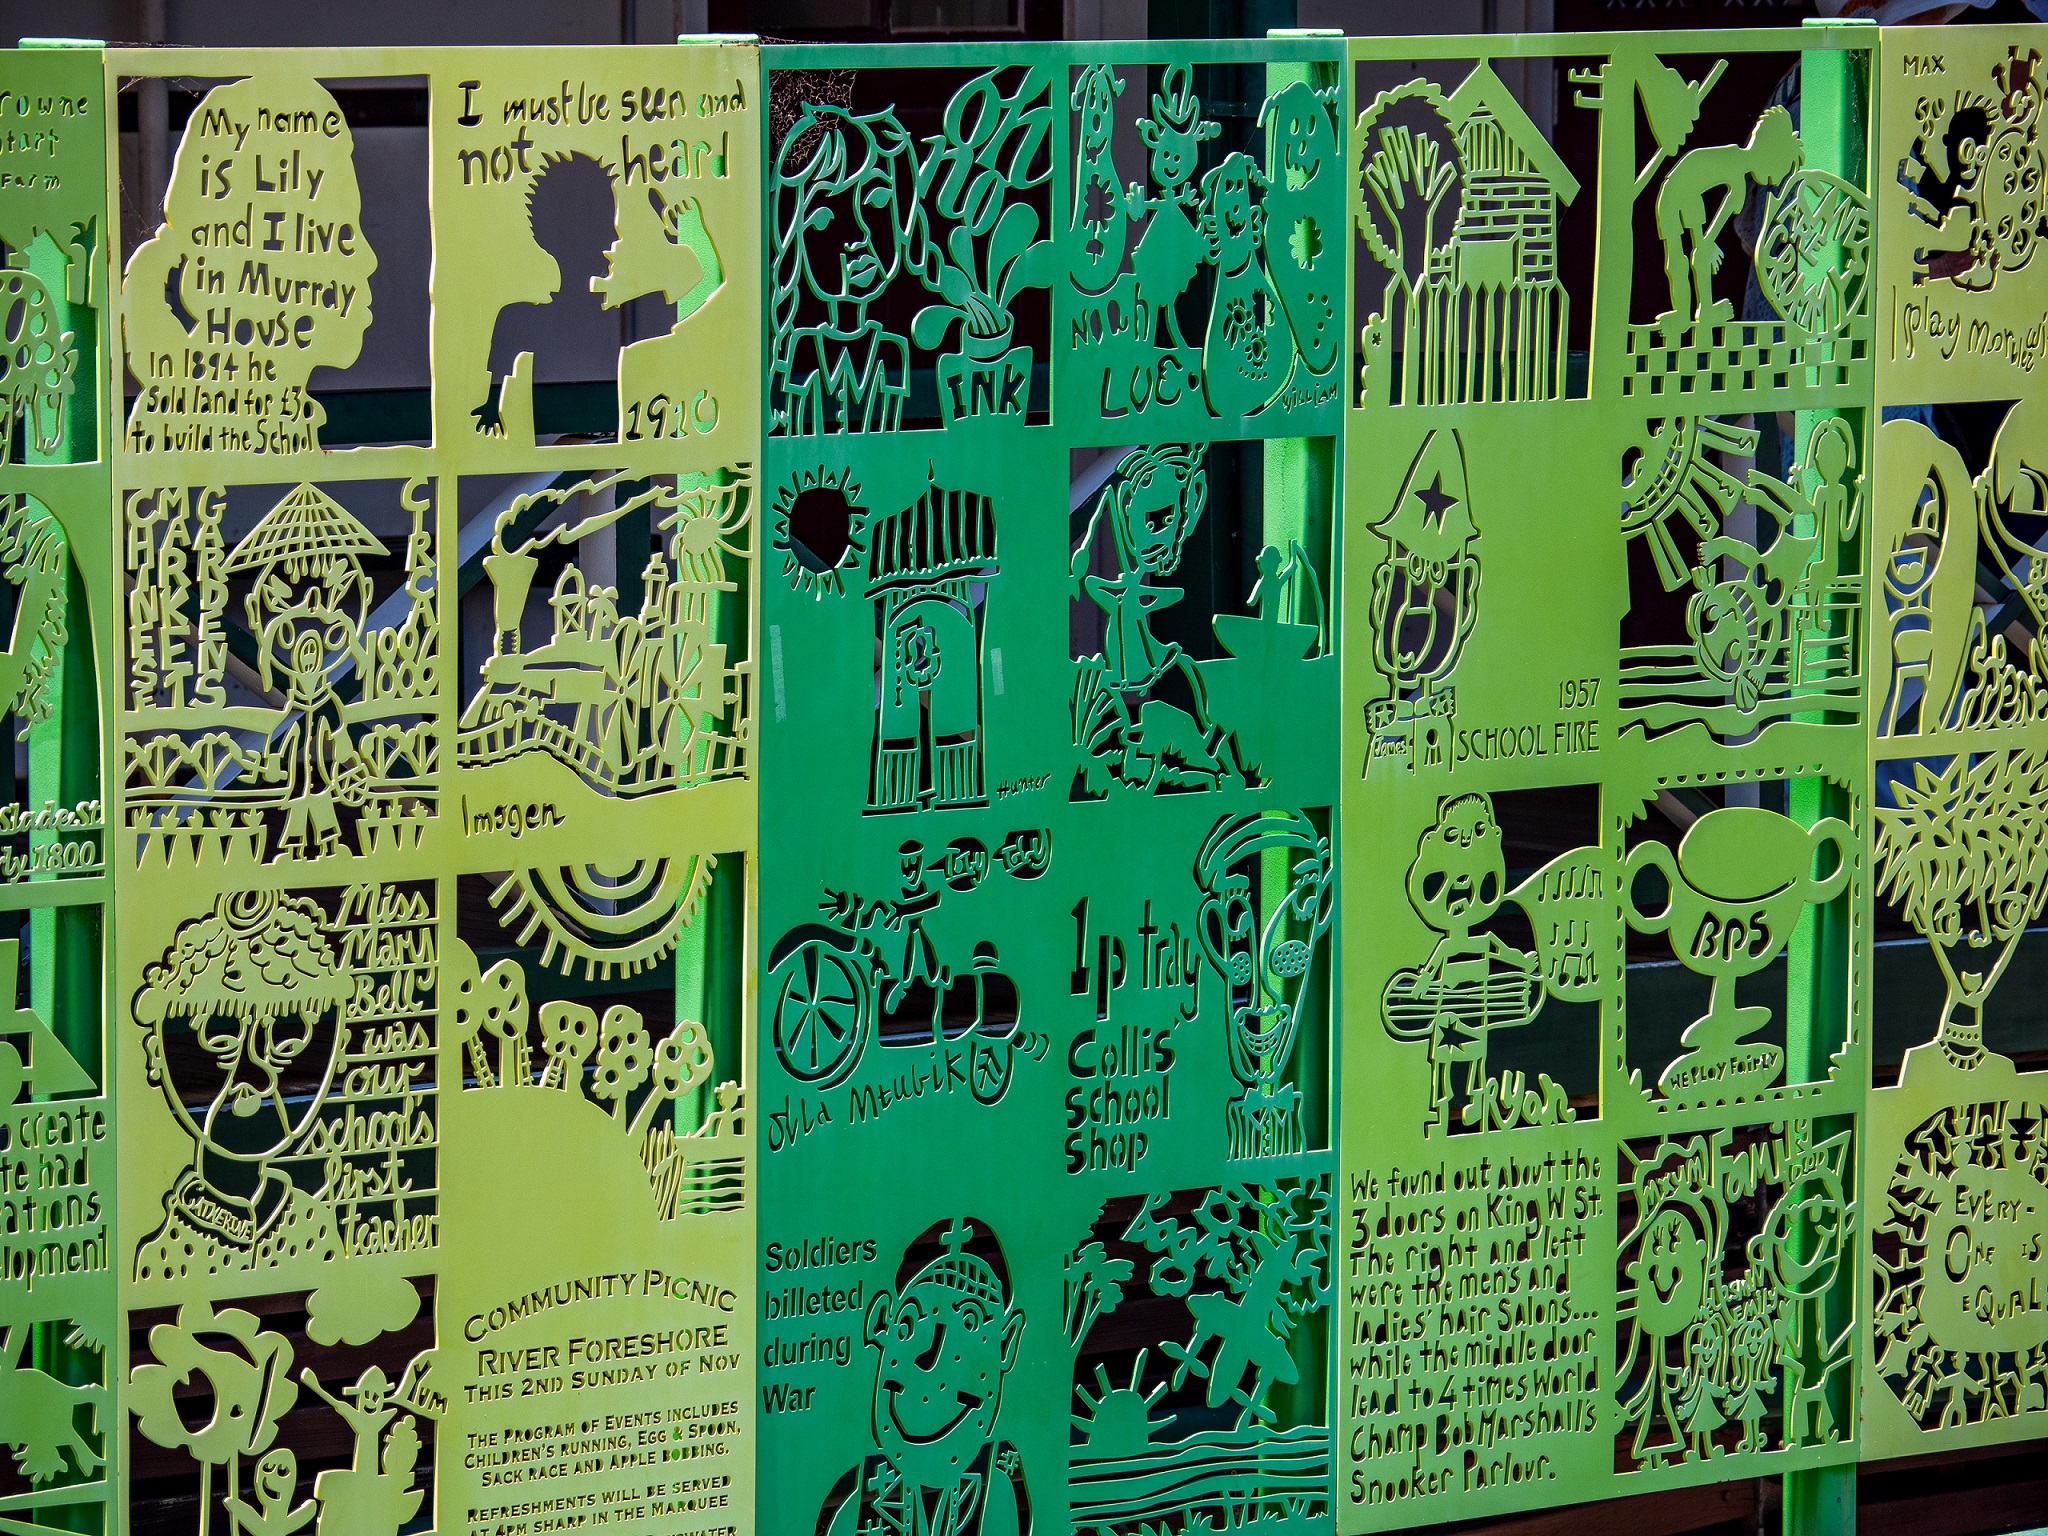 My name
is Lily
and I live
in Murray
House
In 1894 he
Sold land for £30
to build the School
I must be seen and
not heard
1910
oh
no
INK
Noah
LUE
William
MAX
I play
CHINESE
MARKET
GARDENS
CIRCA
1886
Imogen
Hunter
James
1957
SCHOOL FIRE
Slade St
1800
create
had
Miss
Mary
Bell
was
our
school's
first
teacher
CATHERINE
1p tray
Collis'
School
Shop
Ryan
BPS
WE PLAY FAIRLY
EVERY-
ONE IS
EQUAL
Yum
COMMUNITY PICNIC
RIVER FORESHORE
THIS 2ND SUNDAY OF NOV
THE PROGRAM OF EVENTS INCLUDES
CHILDREN'S RUNNING, EGG & SPOON,
SACK RACE AND APPLE BOBBING.
REFRESHMENTS WILL BE SERVED
AT 4PM SHARP IN THE MARQUEE
Soldiers
billeted
during
War
We found out about the
3 doors on King W St.
The right and left
were the mens and
ladies' hair Salons...
while the middle door
lead to 4 times World
Champ Bob Marshall's
Snooker Parlour.